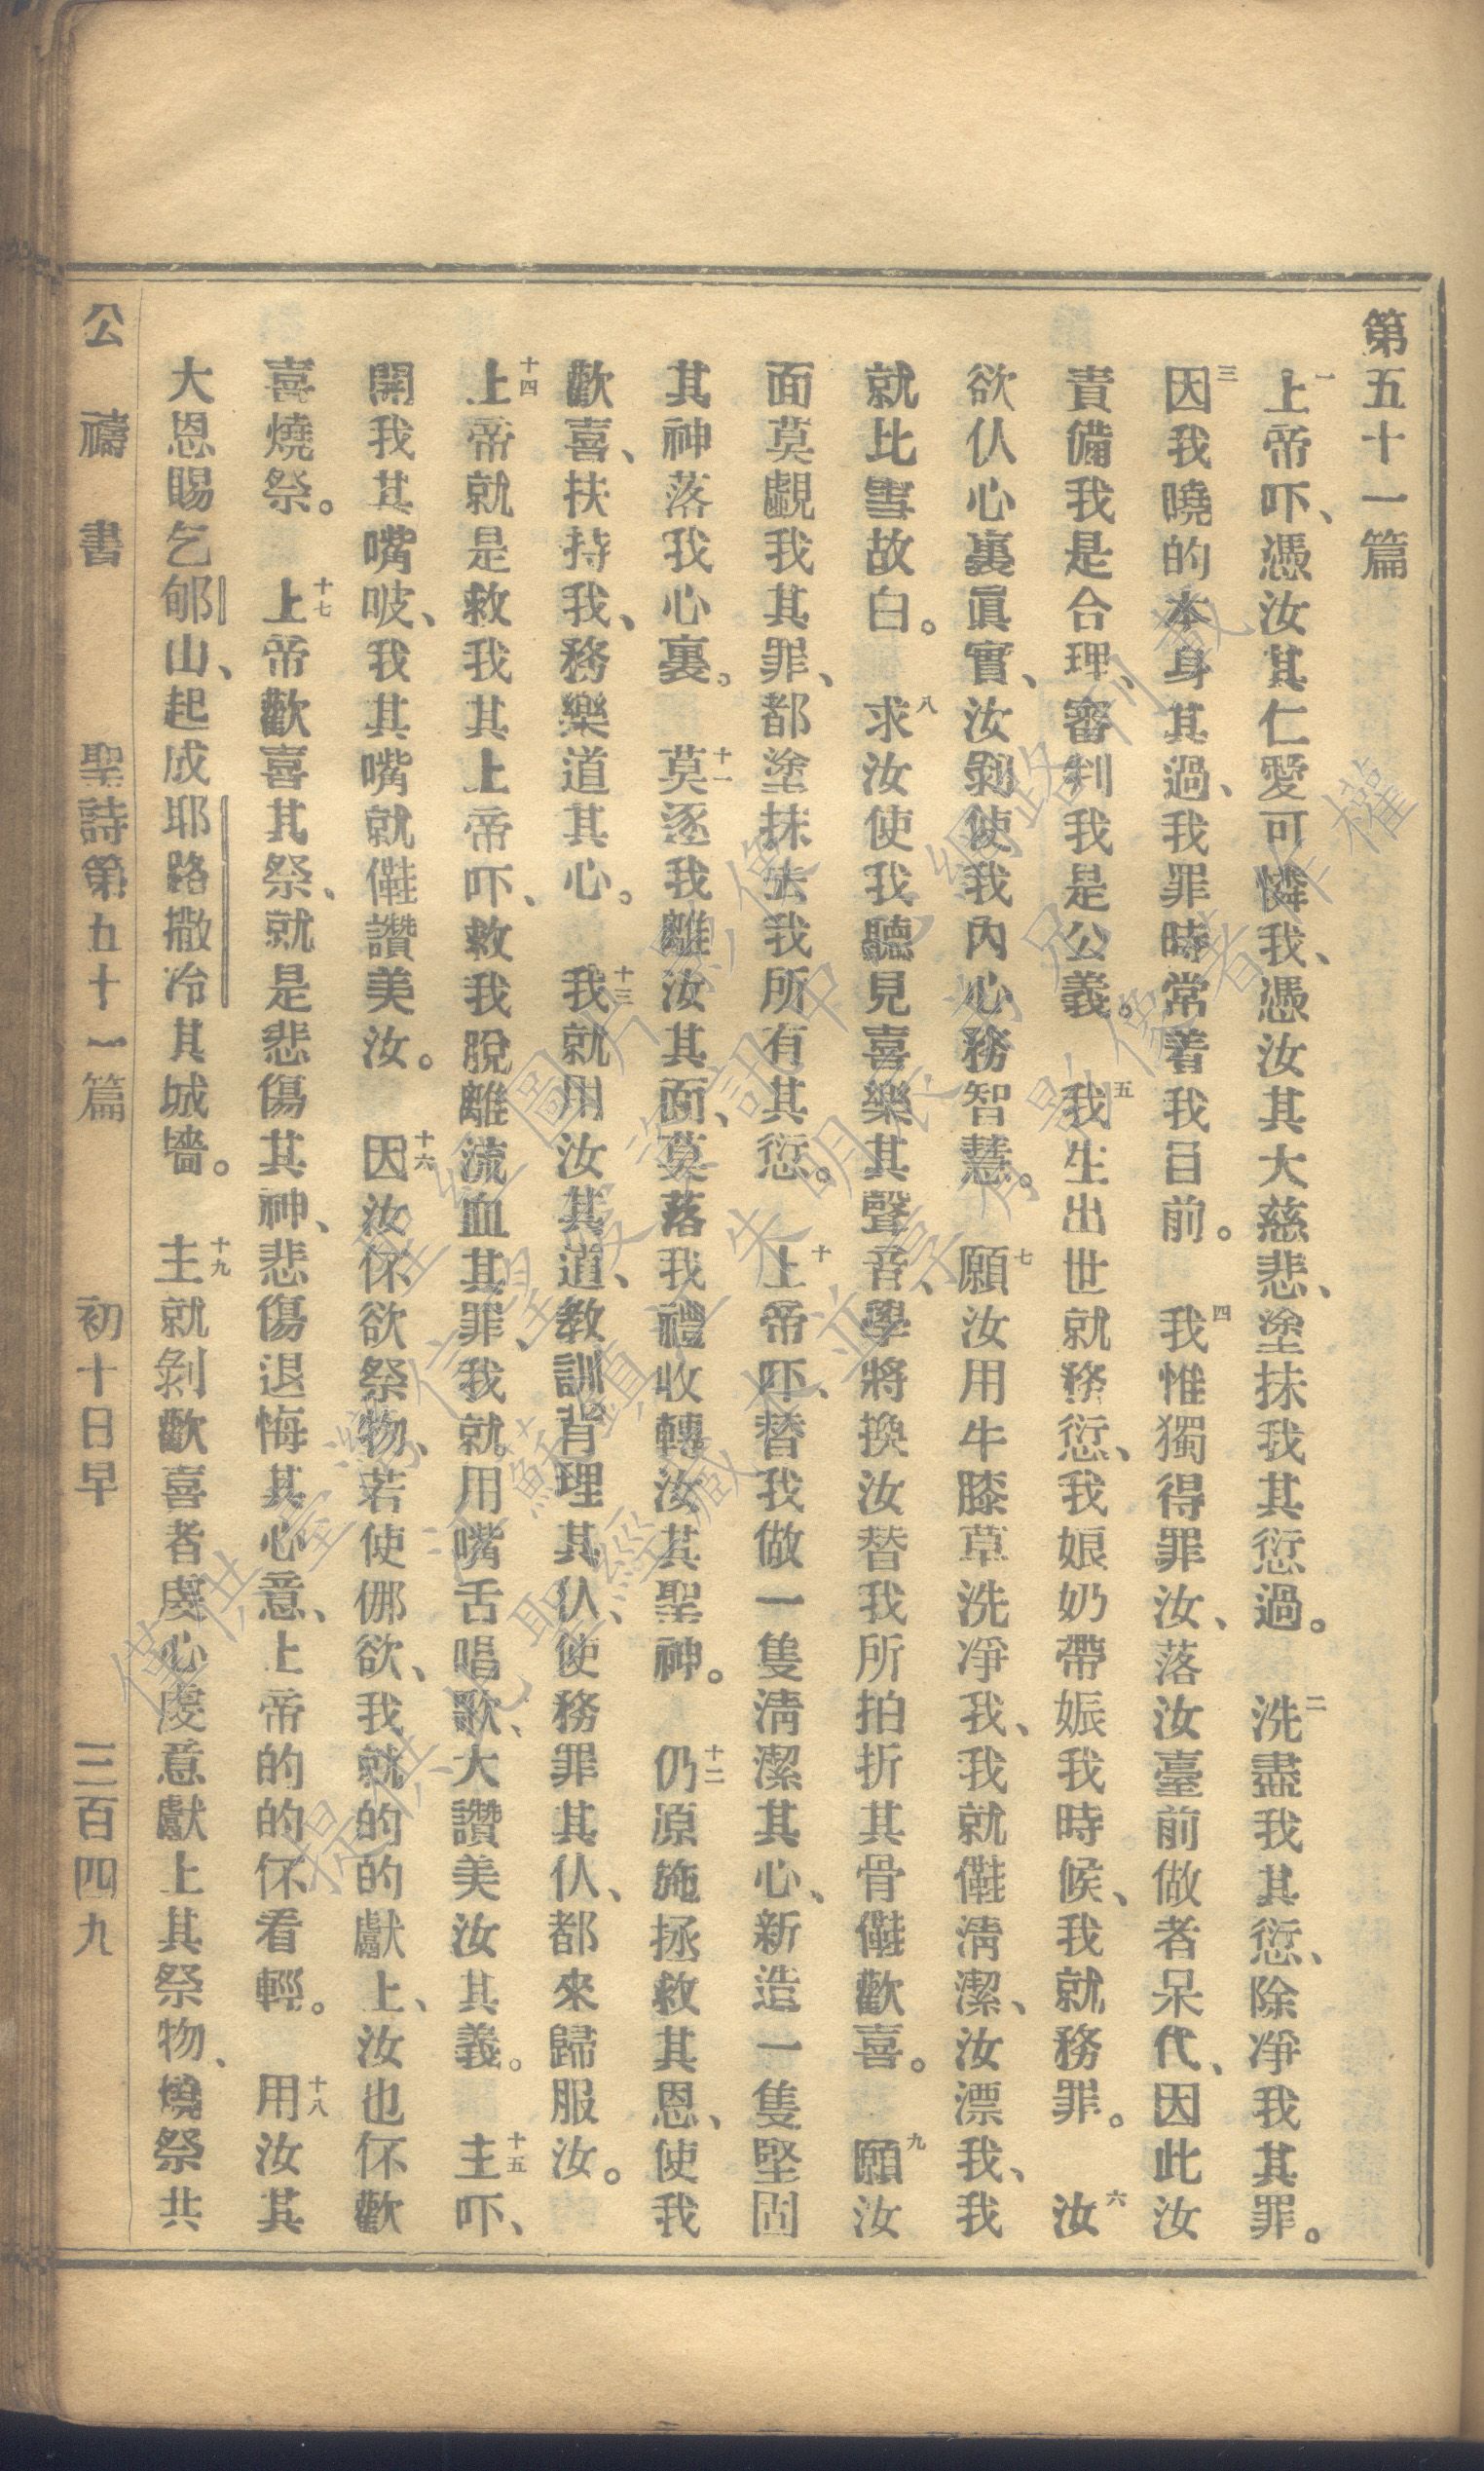 第五十一篇
一上帝吓、憑汝其仁愛可憐我、憑汝其大慈悲、塗抹我其愆過。 二洗盡我其愆、除凈我其罪。
三因我曉的本身其過、我罪時常着我目前。 四我惟獨得罪汝、落汝臺前做者呆代、因此汝
責備我是合理、審判我是公義。 五我生出世就務愆、我娘奶帶娠我時候、我就務罪。 六汝
欲仈心裏眞實、汝剝使我內心務智慧。 七願汝用牛膝草洗凈我、我就㒰淸潔、汝漂我、我
就比雪故白。 八求汝使我聽見喜樂其聲音、學將換汝替我所拍折其骨㒰歡喜。 九願汝
面莫覷我其罪、都塗抹去我所有其愆。 十上帝吓、替我做一隻淸潔其心、新造一隻堅固
其神落我心裏。 十一莫逐我離汝其面、莫落我禮收轉汝其聖神。 十二仍原施拯救其恩、使我
歡喜、扶持我、務樂道其心。 十三我就用汝其道、教訓背理其仈、使務罪其仈、都來歸服汝。
十四上帝就是救我其上帝吓、救我脫離流血其罪、我就用嘴舌唱歌、大讚美汝其義。 十五主吓、
開我其嘴㖞、我其嘴就㒰讚美汝。 十六因汝伓欲祭物、若使𠆧欲、我就的的獻上、汝也伓歡
喜燒祭。 十七上帝歡喜其祭、就是悲傷其神、悲傷退悔其心意、上帝的的伓看輕。 十八用汝其
大恩賜乞郇山、起成耶路撒冷其城墻。 十九主就剝歡喜者虔心虔意獻上其祭物、燒祭共
公禱書 聖詩第五十一篇 初十日早 三百四九